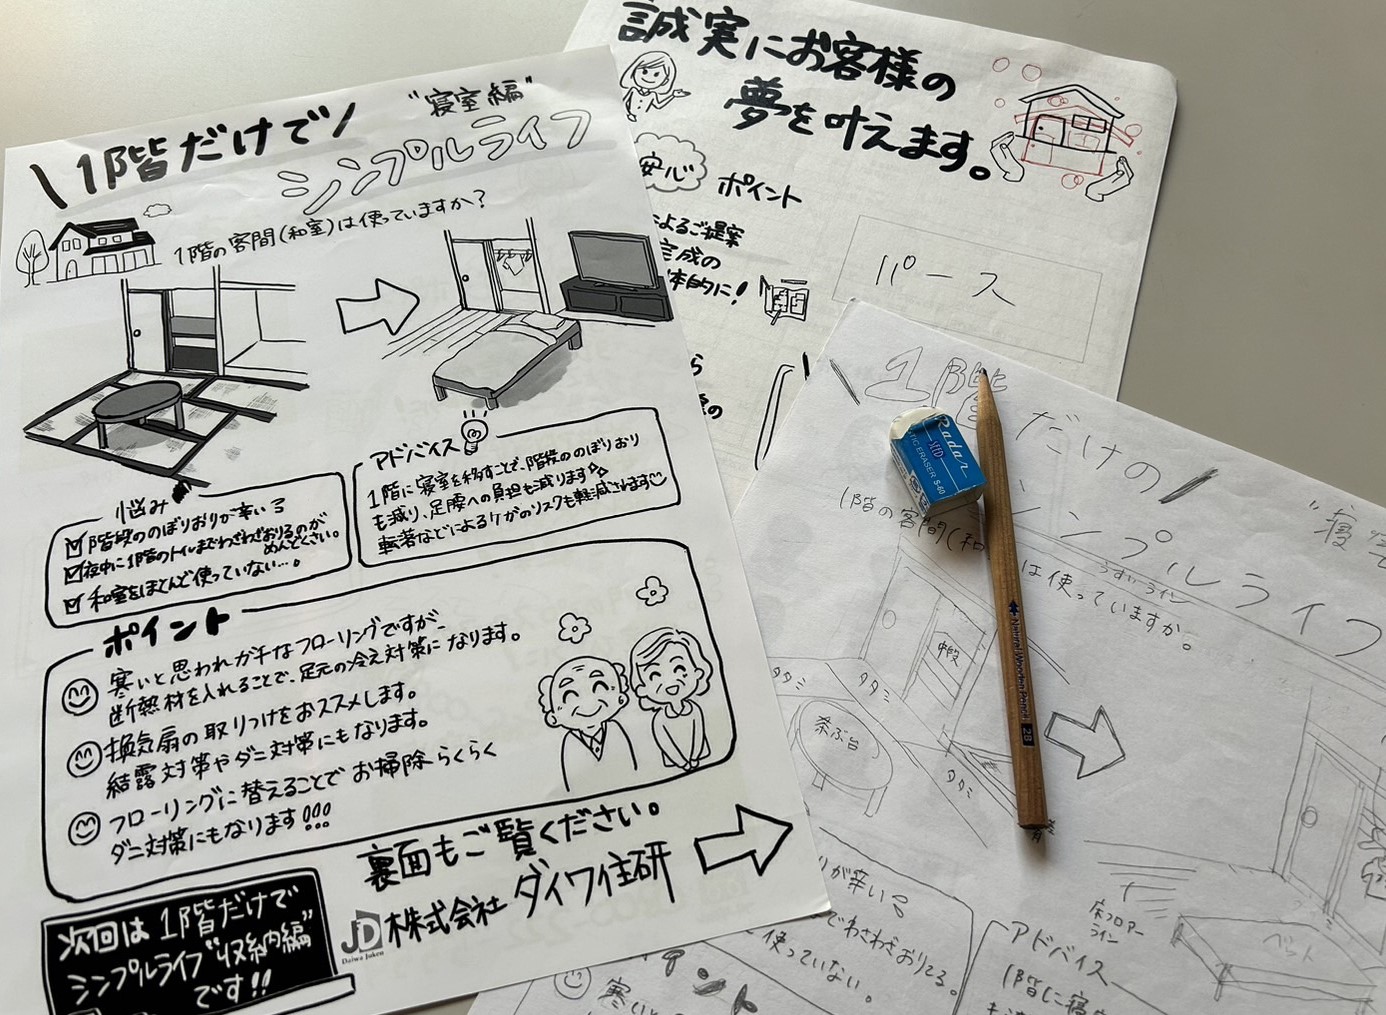 \1階だけで/
"寝室編"
シンプルライフ
1階の客間(和室)は使っていますか?
悩み
階段ののぼりおりが辛い
夜中に1階のトイレまでわざわざおりるのが
めんどくさい。
和室をほとんど使っていない…。
アドバイス
1階に寝室を移すことで、階段ののぼりおり
も減り、足腰への負担も減ります
転落などによるケガのリスクも軽減されます
ポイント
寒いと思われがちなフローリングですが、
断熱材を入れることで、足元の冷え対策になります。
換気扇の取りつけをおススメします。
結露対策やダニ対策にもなります。
フローリングに替えることでお掃除らくらく
ダニ対策にもなります!!!
裏面もご覧ください。
JD
Daiwa Juken
株式会社ダイワ住研
次回は1階だけで
シンプルライフ"収納編"
です!!
誠実にお客様の
夢を叶えます。
安心
ポイント
によるご提案
完成の
体的に!
パース
ら
の
1階だけの
"寝室
シンプルライフ
1階の客間(和
は使っていますか。
うすいライン
中段
タタミ
タタミ
茶ぶ台
タタミ
りが辛い
でわざわざおりてる。
使っていない。
イント
寒い
床フロアー
ライン
ベット
アドバイス
1階に寝
Radar
SEED
TIC ERASER S-60
Natural Wooden Pencil 2B